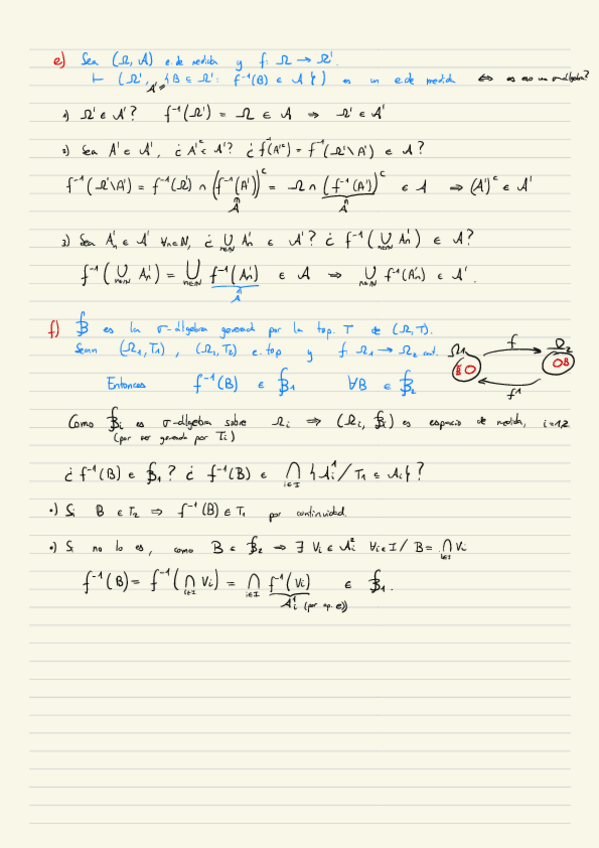 e) Sea (Ω, A) e. de medida y f: Ω → Ω'.
⊢ (Ω', {B ⊆ Ω' : f⁻¹(B) ∈ A}) es un e. de medida ⇔ es eso un σ-álgebra?
A'
1) Ω' ∈ A'? f⁻¹(Ω') = Ω ∈ A ⇒ Ω' ∈ A'
2) Sea A' ∈ A', ¿ A'ᶜ ∈ A'? ¿ f⁻¹(A'ᶜ) = f⁻¹(Ω'\A') ∈ A?
f⁻¹(Ω'\A') = f⁻¹(Ω') ∩ (f⁻¹(A'))ᶜ = Ω ∩ (f⁻¹(A'))ᶜ ∈ A ⇒ (A')ᶜ ∈ A'
A A
3) Sea A'ₙ ∈ A' ∀n∈N, ¿ ⋃ₙ∈N A'ₙ ∈ A'? ¿ f⁻¹(⋃ₙ∈N A'ₙ) ∈ A?
f⁻¹(⋃ₙ∈N A'ₙ) = ⋃ₙ∈N f⁻¹(A'ₙ) ∈ A ⇒ ⋃ₙ∈N f⁻¹(A'ₙ) ∈ A'.
A
f) B es la σ-álgebra generada por la top. T de (Ω, T).
Sean (Ω₁, T₁), (Ω₂, T₂) e. top y f: Ω₁ → Ω₂ cont.
Ω₁ f Ω₂
B
f⁻¹
Entonces f⁻¹(B) ∈ B₁ ∀B ∈ B₂
Como Bᵢ es σ-álgebra sobre Ωᵢ ⇒ (Ωᵢ, Bᵢ) es espacio de medida, i=1,2
(por ser generada por Tᵢ)
¿ f⁻¹(B) ∈ B₁? ¿ f⁻¹(B) ∈ ⋂ᵢ∈I {Aᵢ¹ / T₁ ⊆ Aᵢ}?
•) Si B ∈ T₂ ⇒ f⁻¹(B) ∈ T₁ por continuidad.
•) Si no lo es, como B ∈ B₂ ⇒ ∃ Vᵢ ∈ Aᵢ² ∀i∈I / B = ⋂ᵢ∈I Vᵢ
f⁻¹(B) = f⁻¹(⋂ᵢ∈I Vᵢ) = ⋂ᵢ∈I f⁻¹(Vᵢ) ∈ B₁.
Aᵢ¹ (por ap. e))